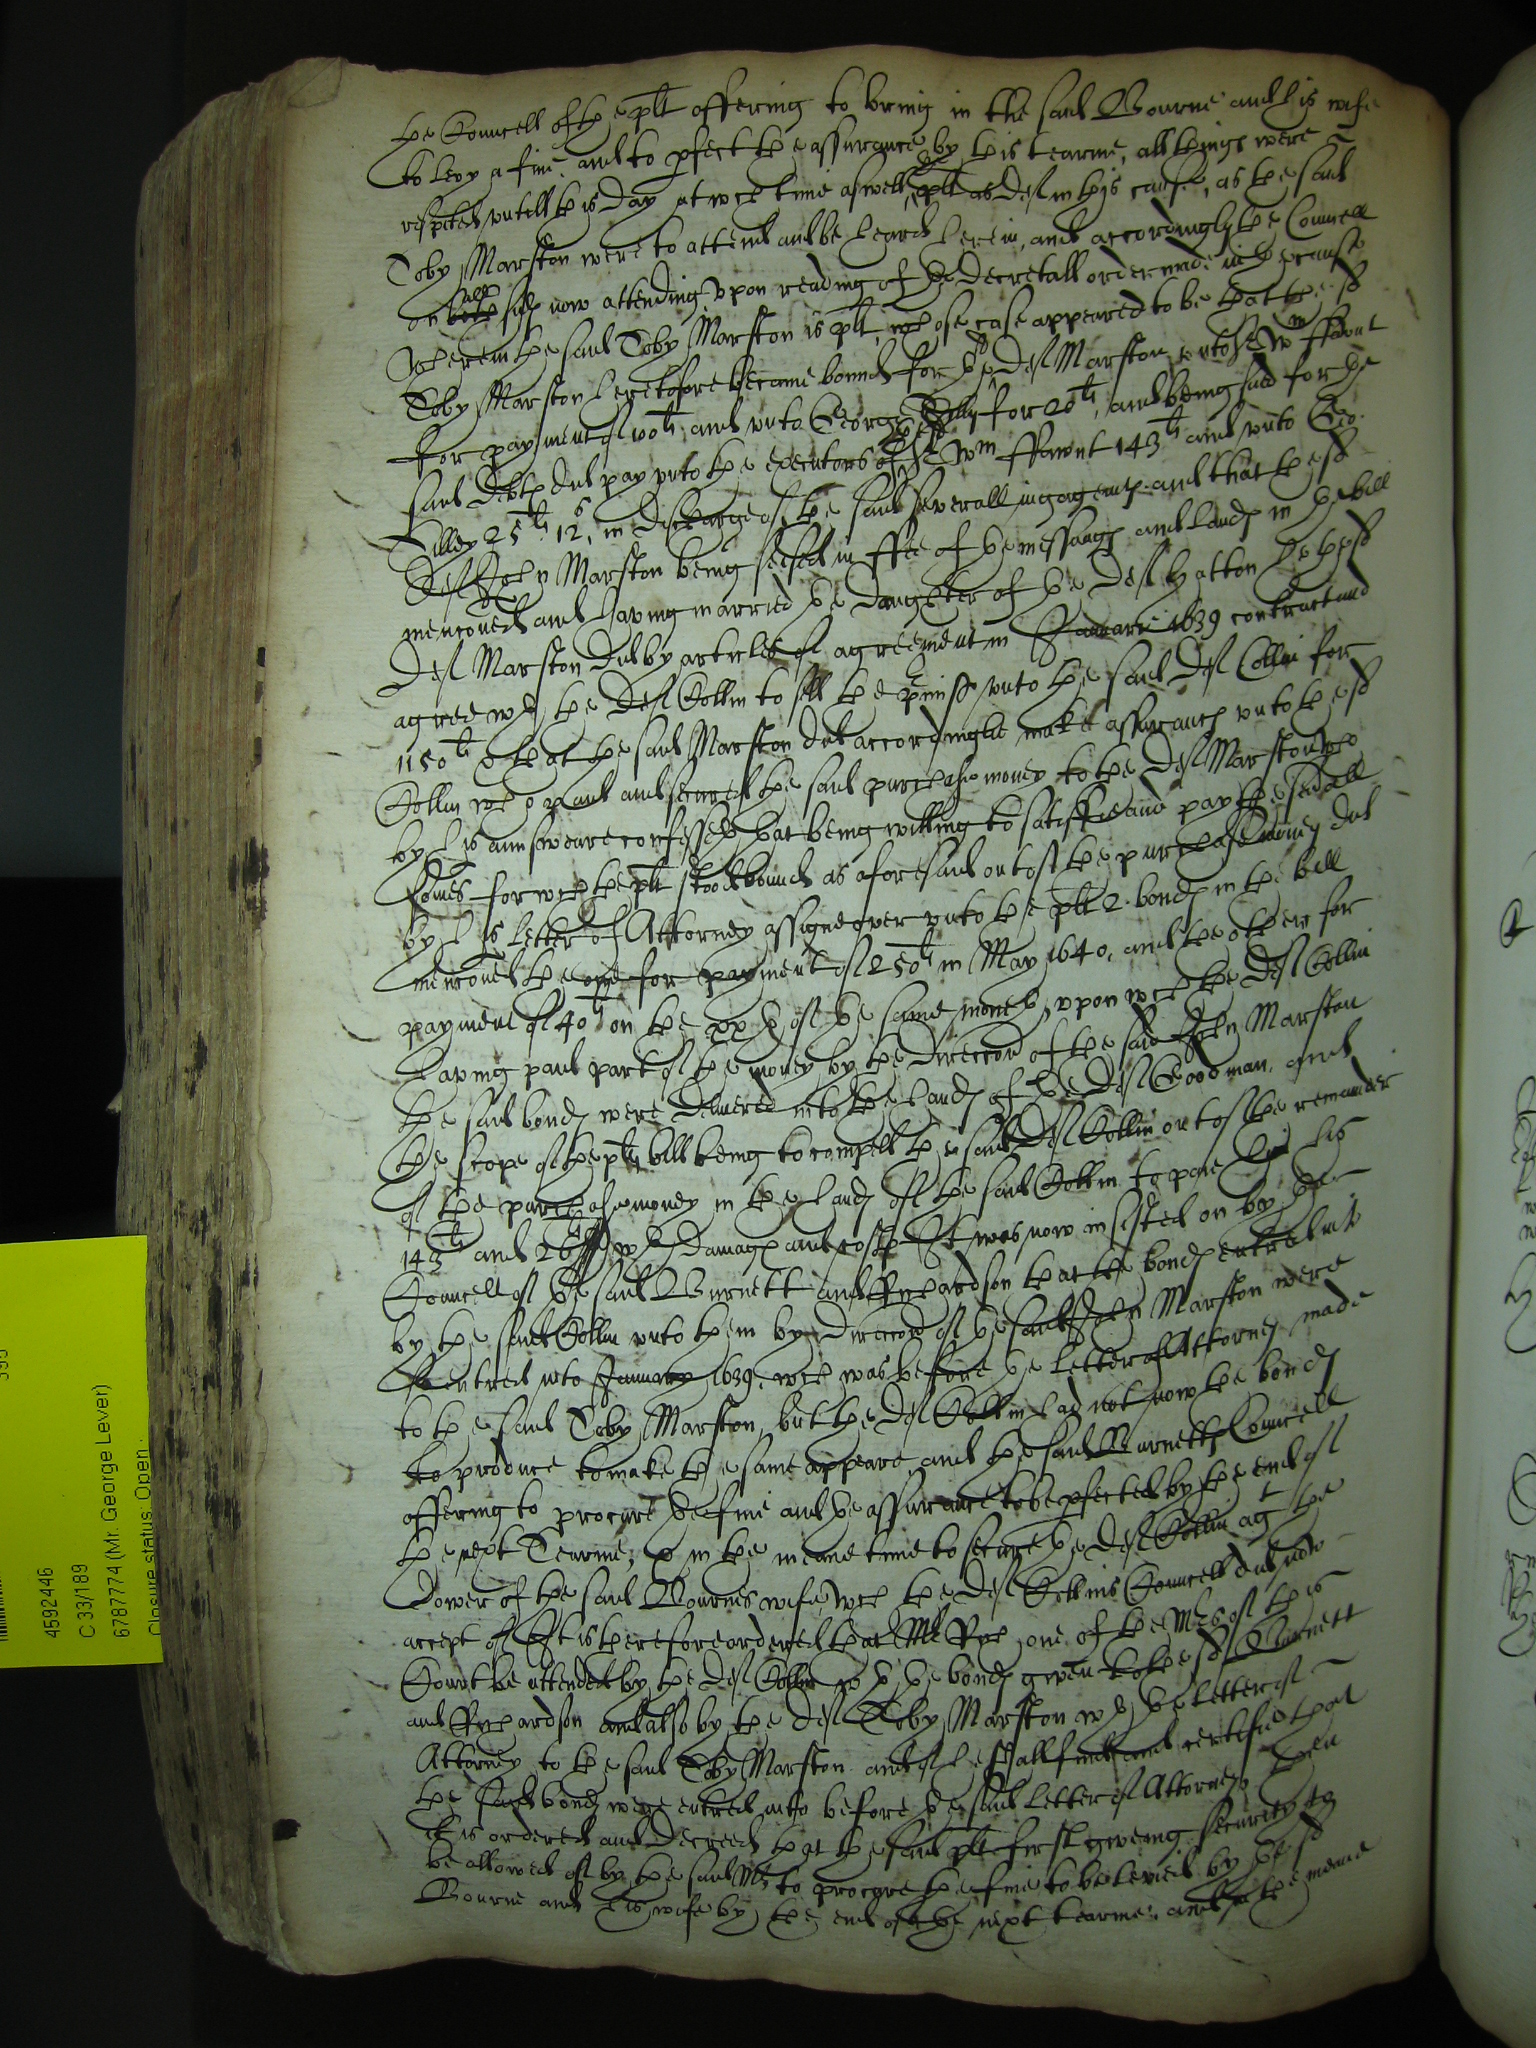 the Councell of the plt offering to bring in the said Bourne and his wife
to levy a fine, and to pfect the assurance by this tearme, all things were
respited untill this day at wch time aswell the plt as def in this cause, as the said
Toby Marston were to attend and be heard herein, and accordingly the Councell
on all sids now attending, upon reading of the decretall order made in the cause
wherein the said Toby Marston is plt, whose case appeared to be that the sd
Toby Marston heretofore became bound for the sd def Marston unto Wm ffawnt
for payment of 110li and unto George Tilly for 20li, and being sued for the
said debts did pay unto the executors of the sd Wm ffawnt 143li and unto Geo.
Tilley 25li 12s, in discharge of the said severall ingagemts and that the sd
def John Marston being seised in ffee of the messuags and lands in the bill
menconed and having married the daughter of the def Hatton he the sd
def Marston did by articles of agreement in Januarie 1639 contract and
agree wth the def Collin to sell the pmiss unto the said def Collin for
1150li & that the said Marston did accordinglie make assurance unto the sd
Collin who paid and secured the said purchase money to the def Marston who
by his answeare confesseth that being willing to satisfie and pay the said
somes for wch the plt stood bound as aforesaid out of the purchase money did
by his letter of Attorney assigne over unto the plt 2. bonds in the bill
menconed the one for payment of 250li in May 1640, and the other for
payment of 40li on the xxth of the same moneth, upon wch the def Collin
having paid part of the money by the direccon of the said John Marston
the said bonds were delivered into the hands of the def Goodman, and
the scope of the plts bill being to compell the said def Collin out of the remainder
of the purchase money in the hands of the said Collin to paie him his
143li and 26li wth damages and costs It was now insisted on by the
Councell of the said Burnett and Rychardson that the bonds entred into
by the said Collin unto them by direccon of the said John Marston were
entred into January 1639, wch was before the letter of Attorney made
to the said Toby Marston, but the def Collin had not now the bonds
to produce to make the same appeare, and the said Burnetts Councell
offering to procure the fine and the assurance to be pfected by the end of
the next Tearme, & in the meane time to secure the def Collin agt the
dower of the said Bournes wife, wch the def Collins Councell did now
accept of It is therefore ordered that Mr Rye one of the Mrs of this
Court be attended by the def Collin wth the bonds given to the sd Burnett
and Rychardson and also by the def Toby Marston wth the letter of
Attorney to the said Toby Marston and if he shall find and certifie that
the said bonds were entred into before the said letter of Attorney, then
it is ordered and decreed that the said plt first giveing security to
be allowed of by the said Mr, to procure the fine to be levied by the sd
Bourne and his wife by the end of the next tearme, and in the meane
4592446
C 33/189
6787774 (Mr. George Lever)
Closure status: Open